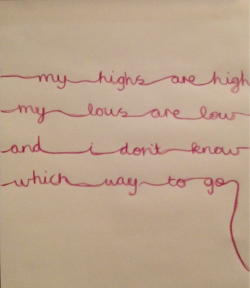 my highs are high
my lows are low
and i don't know
which way to go